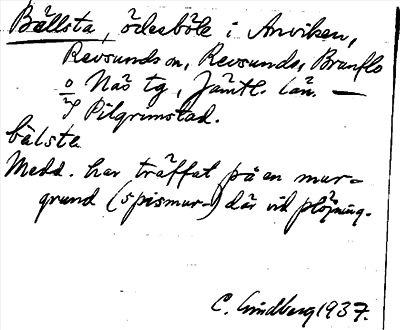 Bällsta, ödesböle i Anviken,
Revsunds sn, Revsunds, Brunflo
o Näs tg, Jämtl. län. —
Pilgrimstad.
bälsta
Medd. har träffat på en mur-
grund (spismur-) där vid plöjning.
C. Lindberg 1937.